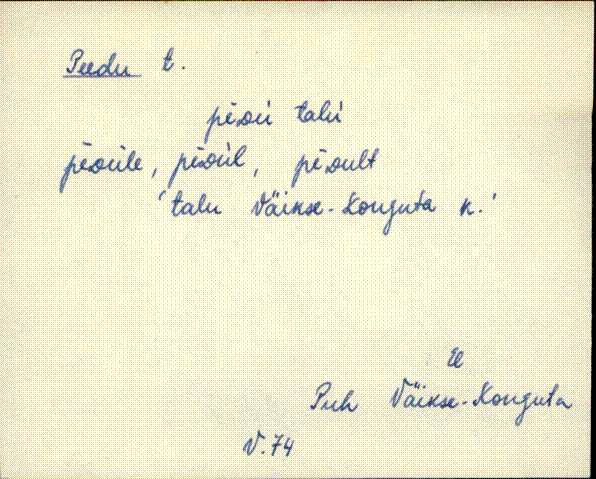 Peedu t.
pēᴅù talù
pēᴅùle, pēᴅùl, pēᴅult
'talu Väikse-Konguta k.'
El
Puh Väikse-Konguta
V.74